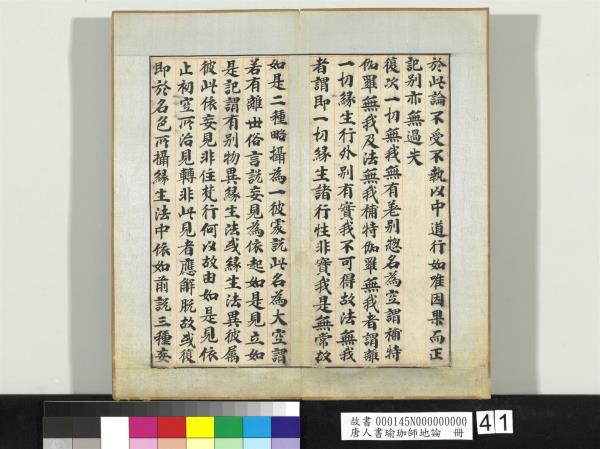 於此論不受不執以中道行如唯因果而正
記別亦無過失
復次一切無我無有差別惣名為空謂補特
伽羅無我及法無我補特伽羅無我者謂離
一切緣生行外別有實我不可得故法無我
者謂即一切緣生諸行性非實我是無常故
如是二種略攝為一彼處說此名為大空謂
若有離世俗言說妄見為依起如是見立如
是記謂有別物異緣生法或緣生法異彼屬
彼此依妄見非住梵行何以故由如是見依
止初空所治見轉非此見者應解脫故或復
即於名色所攝緣生法中依如前說三種妄
故書 000145N000000000
唐人書瑜珈師地論 冊
41